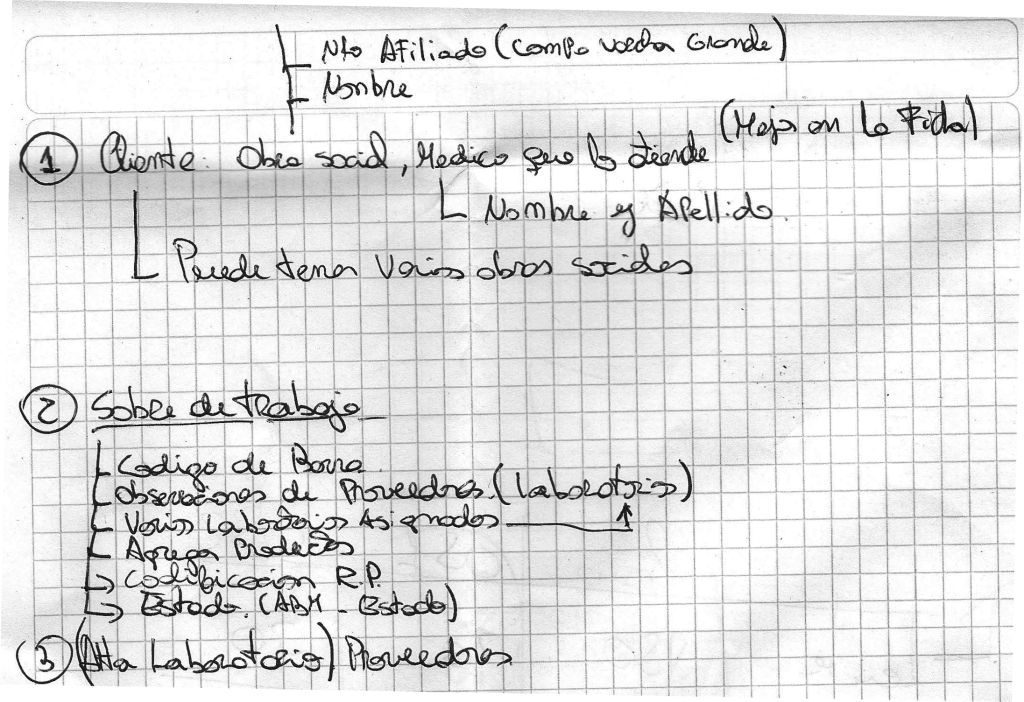 Nto Afiliado (campo vocha Grande)
Nombre
(Mejor en la Ficha)
1 Cliente: Obra social, Medico que lo atiende
Nombre y Apellido.
Puede tener Varias obras sociales
2 Sobre de trabajo
Codigo de Barra.
Observaciones de Proveedores. (Laboratorios)
Varios Laboratorios Asignados
Agregar Productos
Codificacion R.P.
Estado. (ABM - Estado)
3 (Alta Laboratorio) Proveedores